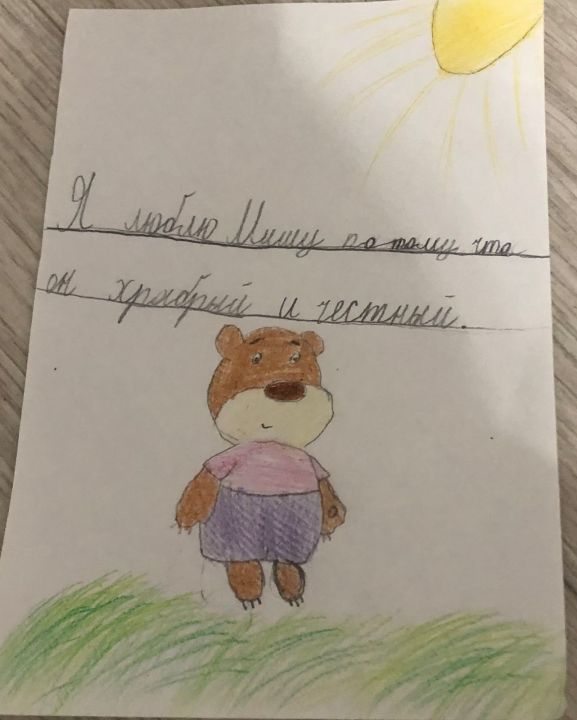 Я люблю Мишу по тому что
он храбрый и честный.